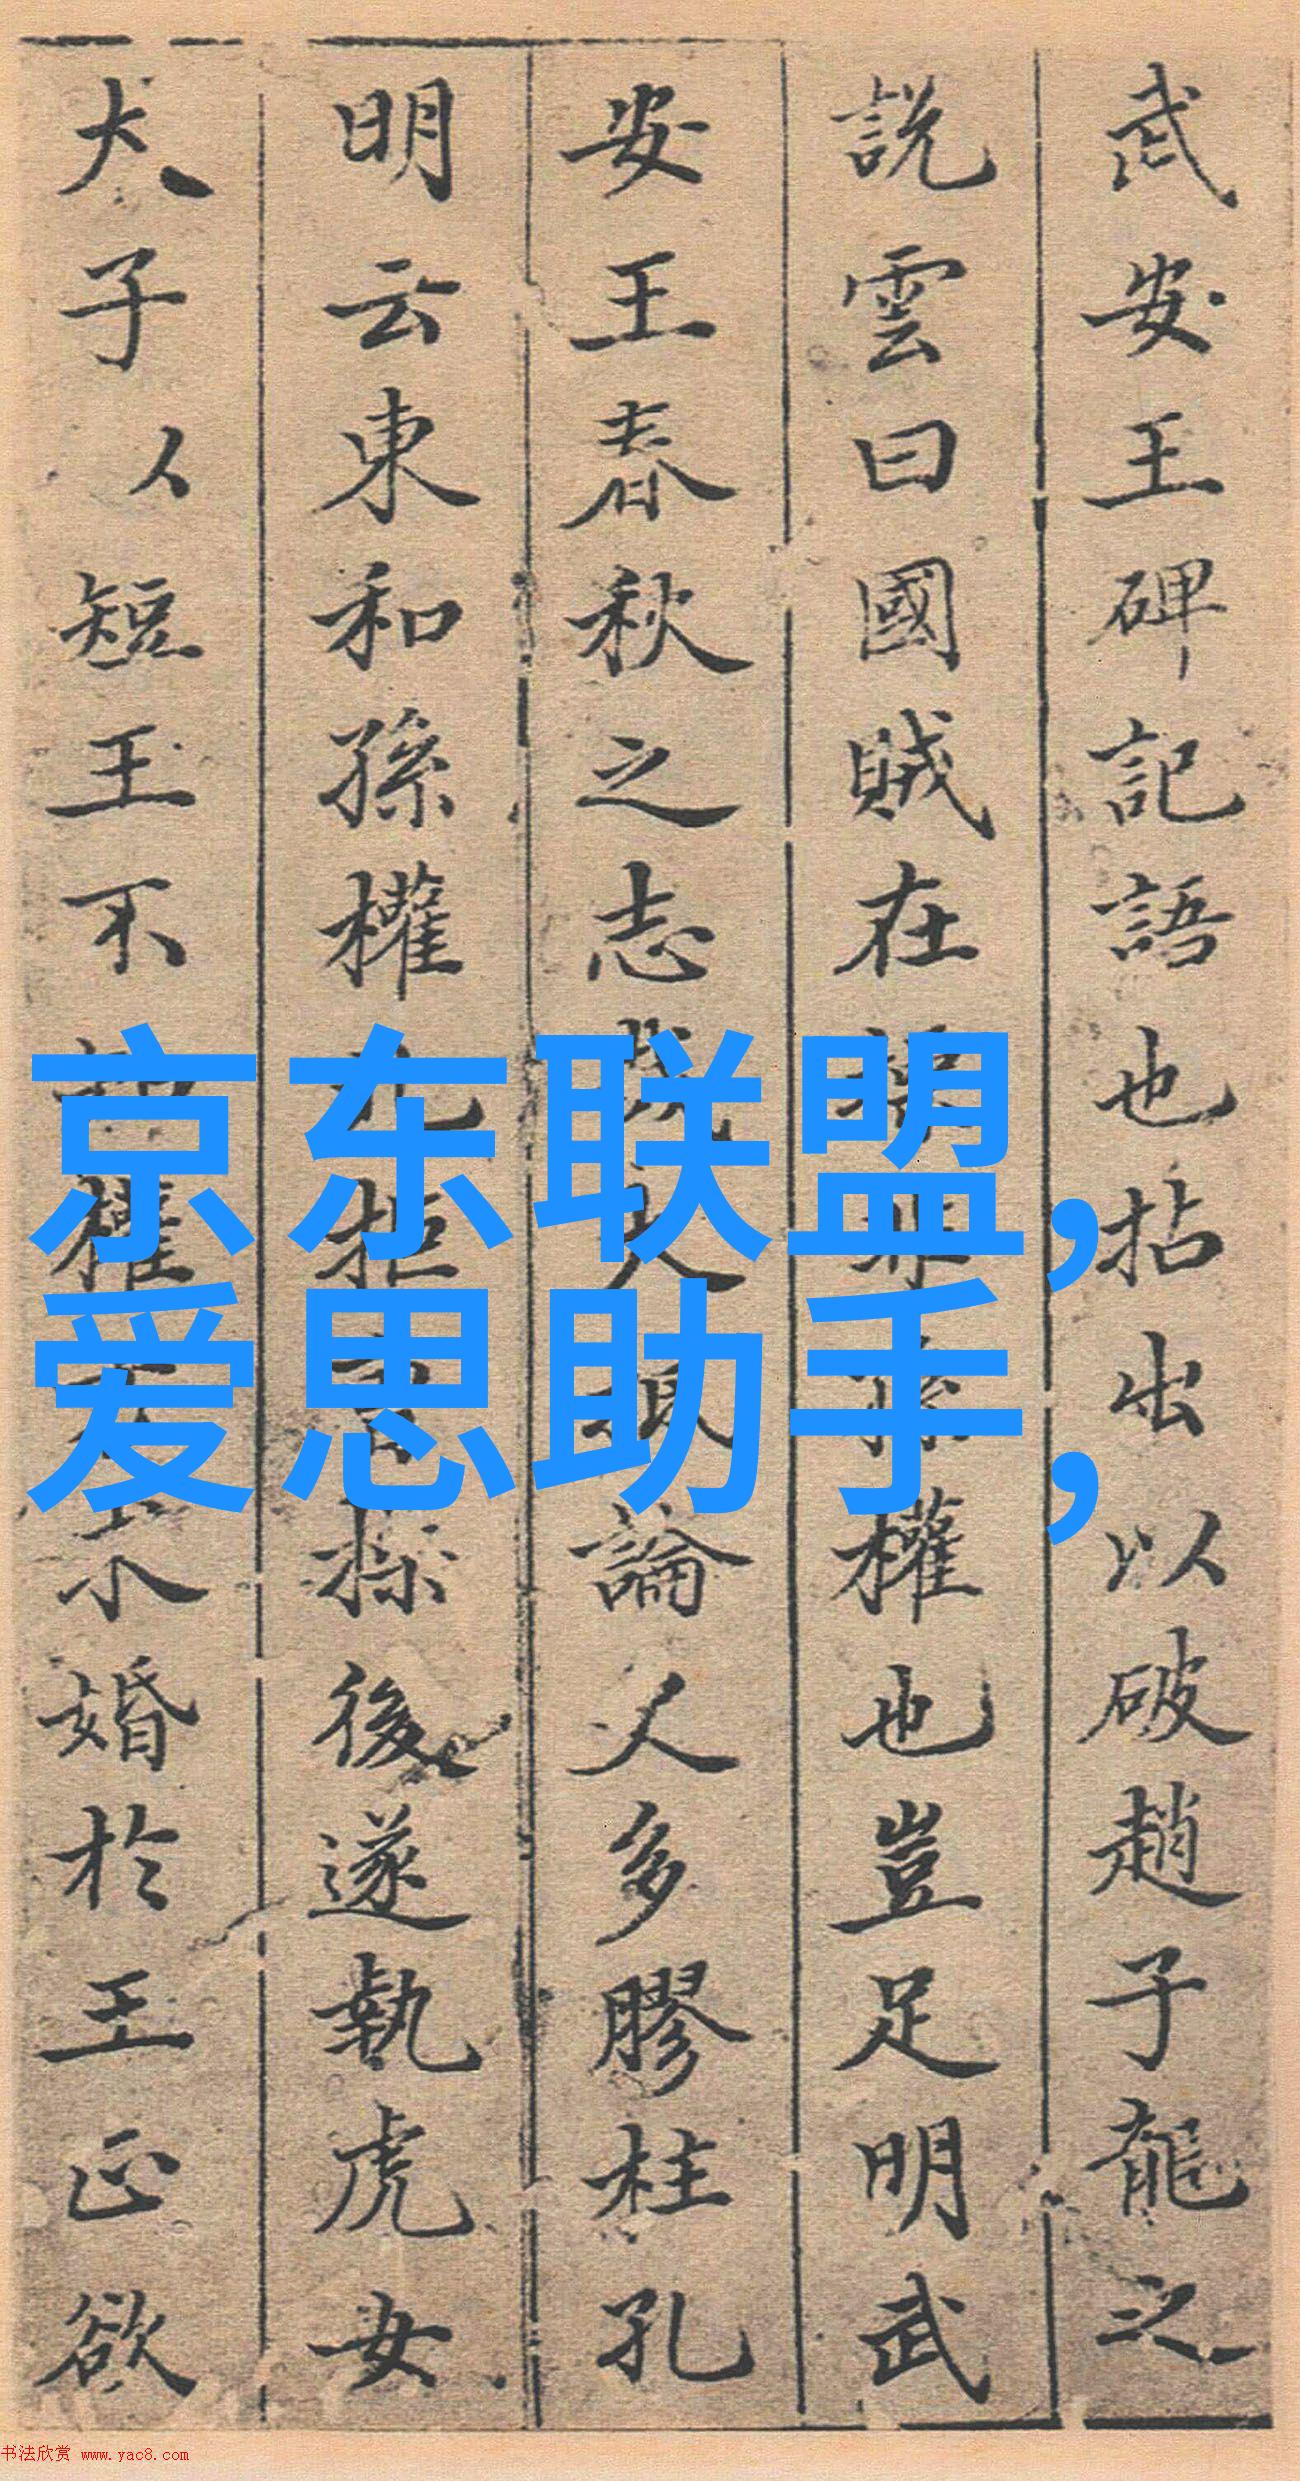 武安王碑記語也拈出以破趙子龍之
説雲曰國賊在操非孫權也豈足明武
安王春秋之志哉大抵論人多膠柱孔
明云東和孫權北拒曹操後遂執虎女
犬子以短王不權求婚於王正欲
京东联盟,
爱思助手,
书法欣赏 www.yac8.com